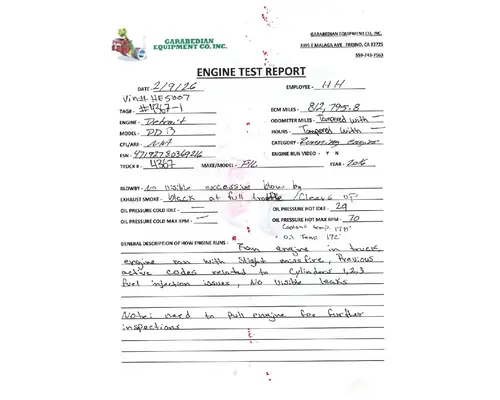 GARABEDIAN
EQUIPMENT CO, INC.
GARABEDIAN EQUIPMENT CO, INC.
3395 E MALAGA AVE FRESNO, CA 93725
559-743-7563
ENGINE TEST REPORT
DATE - 2/9/26
EMPLOYEE - HH
Vin# HE5007
TAG# #4367-1
ECM MILES - 812,795.8
ENGINE - Detroit
ODOMETER MILES - Tampered with -
MODEL - DD13
HOURS - Tampered with -
CPL/AR# - N/A
CATEGORY - Running Engine
ESN - 471927S0369216
ENGINE RUN VIDEO - Y N
TRUCK # - 4367
MAKE/MODEL - F/L
YEAR - 2015
BLOWBY - No visible excessive blow by
EXHAUST SMOKE - black at full throttle / Clears up
OIL PRESSURE COLD IDLE -
OIL PRESSURE HOT IDLE - 29
OIL PRESSURE COLD MAX RPM -
OIL PRESSURE HOT MAX RPM - 70
Coolant temp. 178°
Oil Temp. 172°
GENERAL DESCRIPTION OF HOW ENGINE RUNS - Ran engine in truck,
engine ran with slight missfire, Previous
active codes related to Cylinders 1,2,3
fuel injection issues, No visible leaks
Note: need to Pull engine for further
inspections